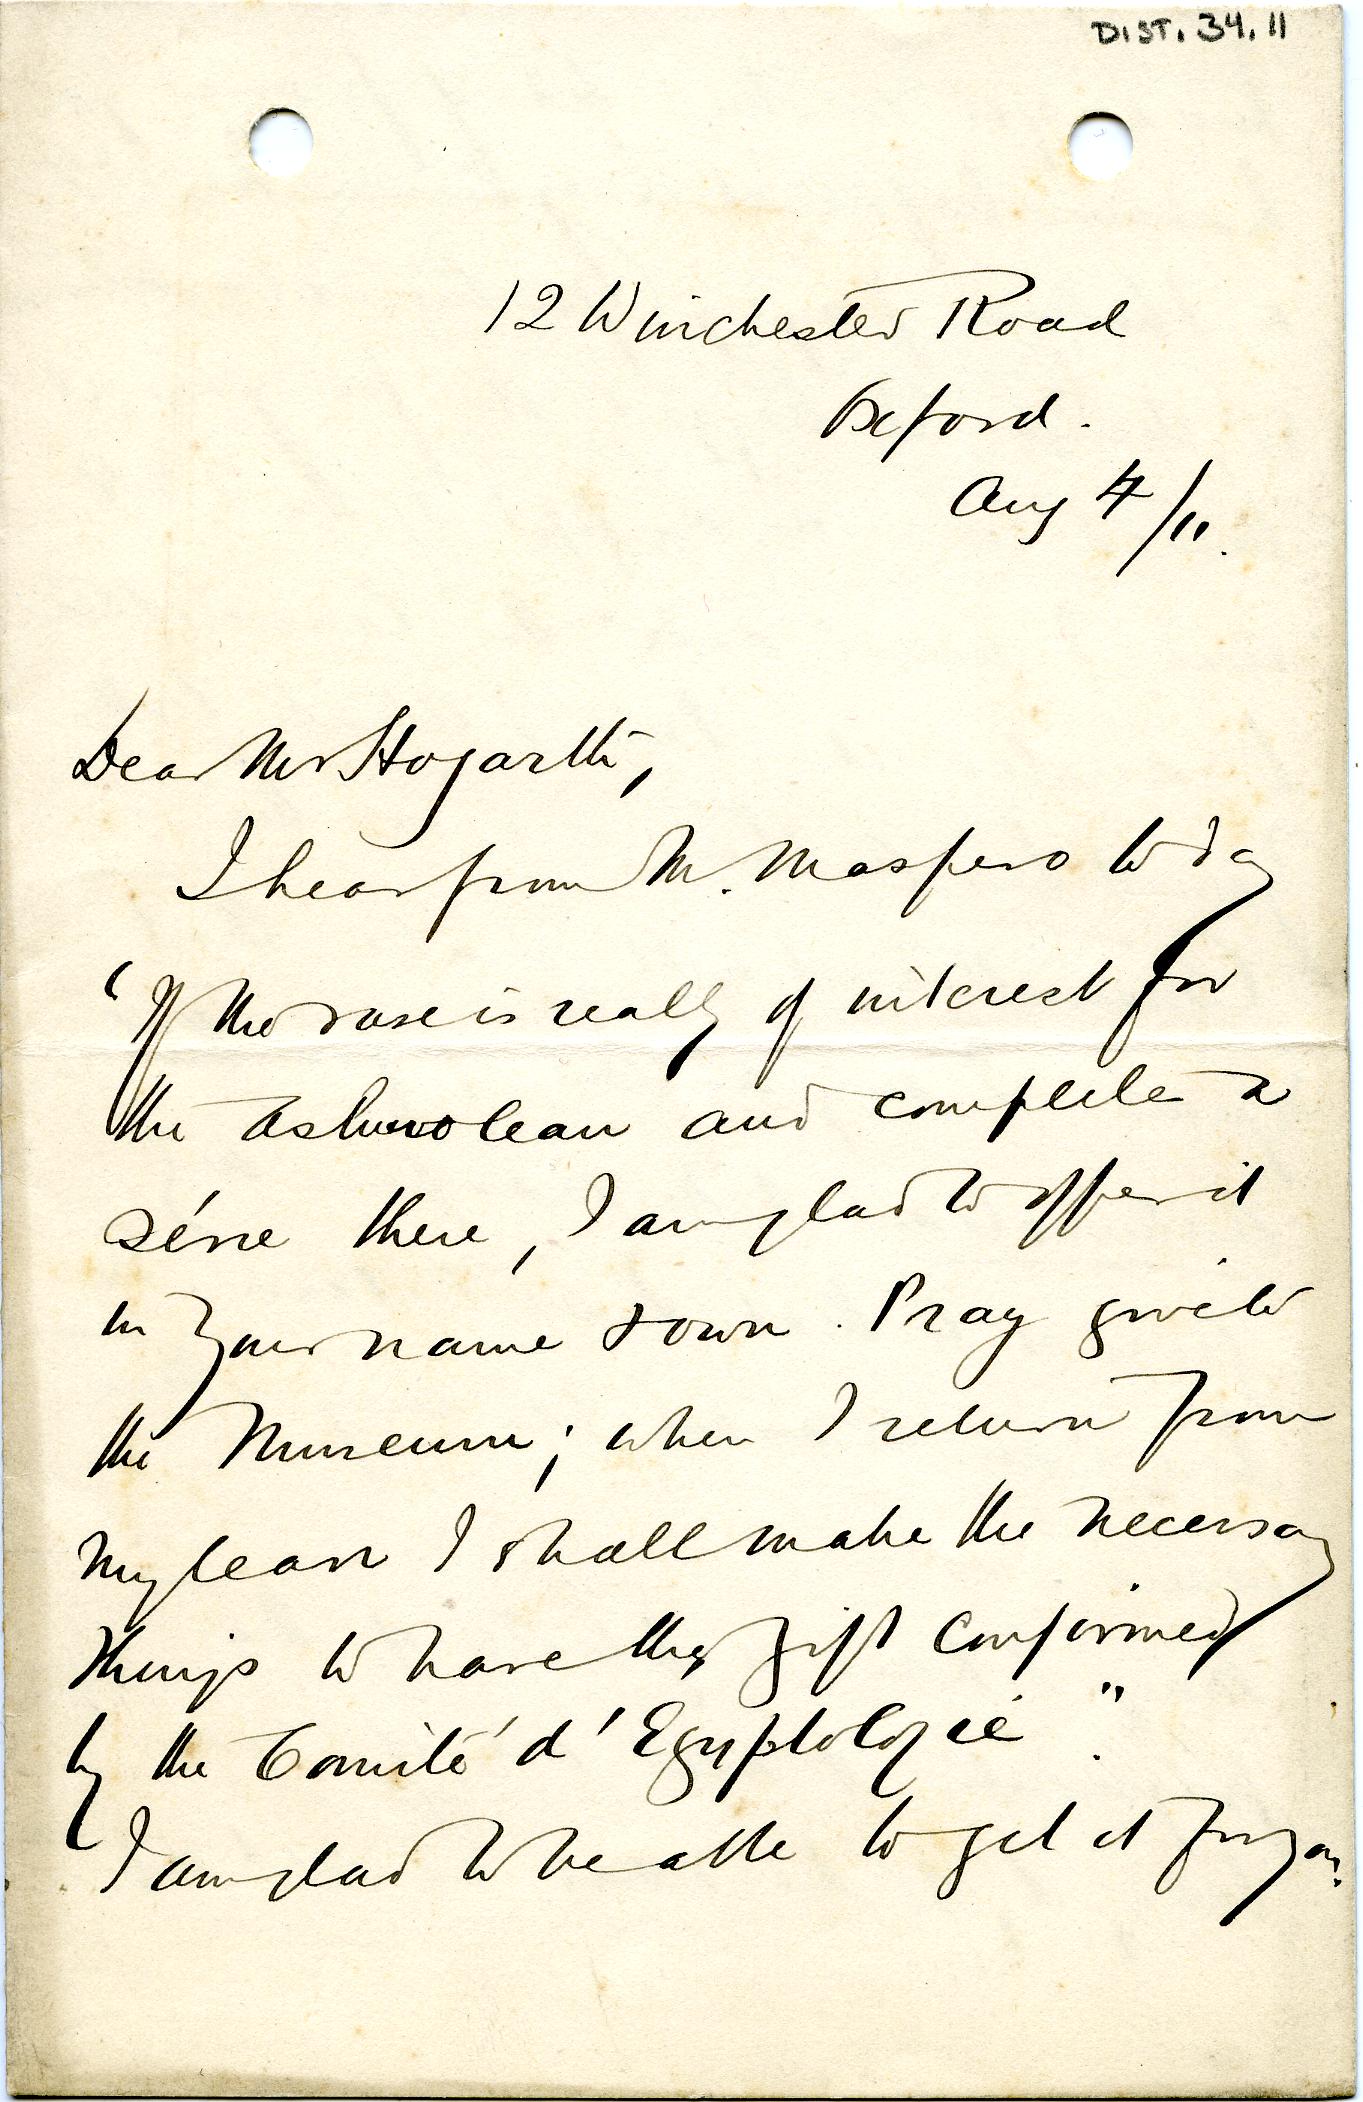 DIST. 34. 11
12 Winchester Road
Oxford.
Aug 4/11.
Dear Mr Hogarth,
I hear from M. Maspero to day
"If the vase is really of interest for
the Ashmolean and complete a
série there, I am glad to offer it
in your name & own. Pray give it to
the Museum; when I return from
my leave I shall make the necessary
things to have the gift confirmed
by the Comité d'Egyptologie".
I am glad to be able to get it for you.